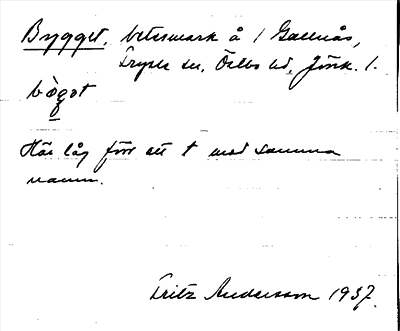 Bygget, betesmark å 1 Galtnås,
Tryse sn, Östbo hd, Jönk. l.
bỳgət
Här låg förr ett t med samma
namn.
Fritz Andersson 1937.